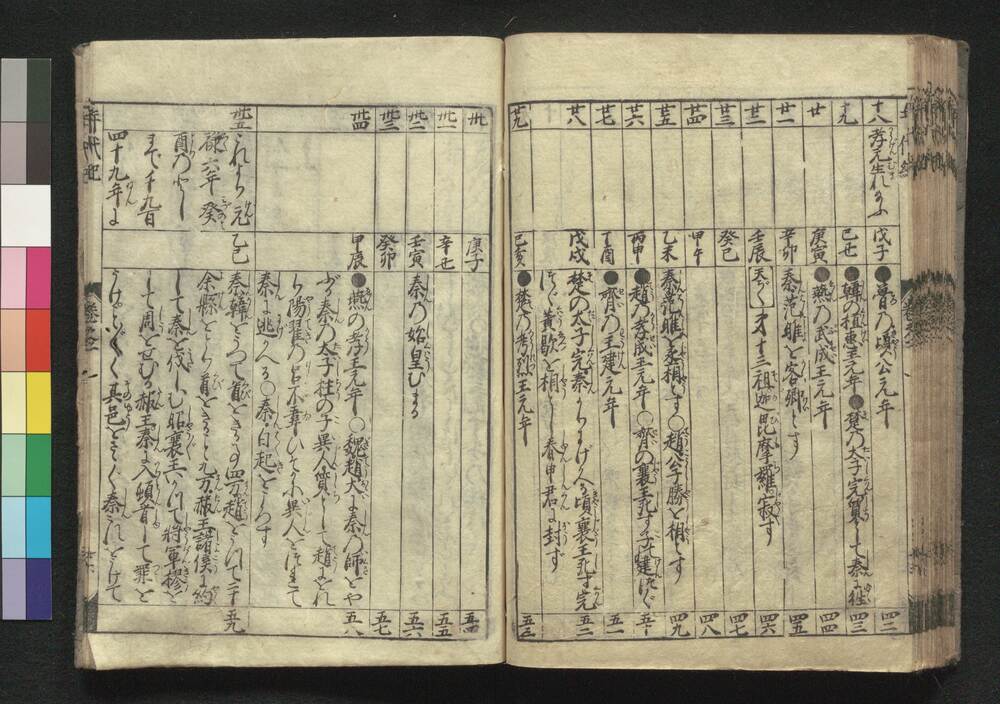 十八 孝元生れ給ふ 戊子 ●魯の頃公元年 四二
十九 己丑 ●韓の桓惠王元年●楚の太子完質として秦に往 四三
廿 庚寅 ●燕の武成王元年 四四
廿一 辛卯 秦范雎を客卿とす 四五
廿二 壬辰 【天ぢく】第十三祖迦毘摩羅寂す 四六
廿三 癸巳 四七
廿四 甲午 四八
廿五 乙未 秦范雎を丞相とす○趙公子勝を相とす 四九
廿六 丙申 ●趙の孝成王元年○齊の襄王死す子建つぐ 五十
廿七 丁酉 ●齊の王建元年 五一
廿八 戊戌 楚の太子完秦よりにげかへる頃襄王死す完
つぐ黄歇を相とし春申君に封ず 五二
廿九 己亥 ●楚の考烈王元年 五三
卅 庚子 五四
卅一 辛丑 五五
卅二 壬寅 秦の始皇むまる 五六
卅三 癸卯 五七
卅四 甲辰 ●燕の孝王元年○魏趙大に秦の師をや
ぶる秦の太子柱の子異人質として趙にをれ
り陽翟の呂不韋ひそかに異人をつれて
秦に逃かへる○秦白起をころす 五八
卅五 これより元
禄六年癸
酉のとし
まで千九百
四十九年に
乙巳 秦韓をうつて首をきる事四万趙をうつて二十
余縣をとり首をきること九万赧王諸侯に約
して秦を伐しむ昭襄王いかつて將軍摎を
して周をせむる赧王秦に入頓首して罪を
うけことごとく其邑をさゝぐ秦これをうけて 五九